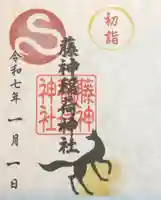 初詣
藤神稲荷神社
藤神
神社
令和七年 一月 一日